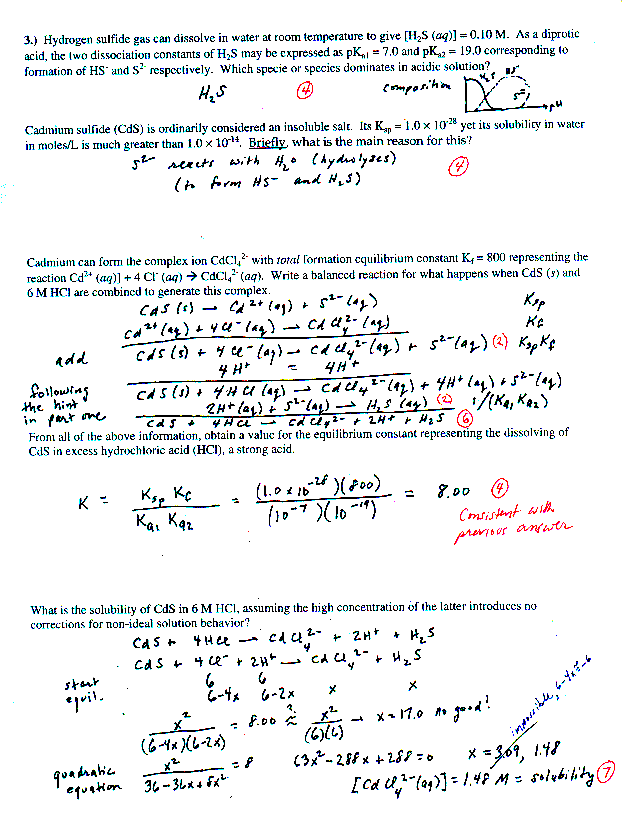 3.) Hydrogen sulfide gas can dissolve in water at room temperature to give [H₂S (aq)] = 0.10 M. As a diprotic
acid, the two dissociation constants of H₂S may be expressed as pKₐ₁ = 7.0 and pKₐ₂ = 19.0 corresponding to
formation of HS⁻ and S²⁻ respectively. Which specie or species dominates in acidic solution?
H₂S ④ composition H₂S HS⁻ S²⁻ pH
Cadmium sulfide (CdS) is ordinarily considered an insoluble salt. Its Kₛₚ = 1.0 x 10⁻²⁸ yet its solubility in water
in moles/L is much greater than 1.0 x 10⁻¹⁴. Briefly, what is the main reason for this?
S²⁻ reacts with H₂O (hydrolyses) ④
(to form HS⁻ and H₂S)
Cadmium can form the complex ion CdCl₄²⁻ with total formation equilibrium constant K_f = 800 representing the
reaction Cd²⁺ (aq)] + 4 Cl⁻ (aq) → CdCl₄²⁻ (aq). Write a balanced reaction for what happens when CdS (s) and
6 M HCl are combined to generate this complex.
CdS (s) → Cd²⁺ (aq) + S²⁻ (aq) Ksp
Cd²⁺ (aq) + 4 Cl⁻ (aq) → CdCl₄²⁻ (aq) Kf
add CdS (s) + 4 Cl⁻ (aq) → CdCl₄²⁻ (aq) + S²⁻ (aq) (2) Ksp Kf
4H⁺ = 4H⁺
following CdS (s) + 4H Cl (aq) → CdCl₄²⁻ (aq) + 4H⁺ (aq) + S²⁻ (aq)
the hint 2H⁺ (aq) + S²⁻ (aq) → H₂S (aq) (2) 1/(Ka₁ Ka₂)
in part one CdS + 4HCl → CdCl₄²⁻ + 2H⁺ + H₂S ⑥
From all of the above information, obtain a value for the equilibrium constant representing the dissolving of
CdS in excess hydrochloric acid (HCl), a strong acid.
K = Ksp Kf / Ka₁ Ka₂ = (1.0 x 10⁻²⁸)(800) / (10⁻⁷)(10⁻¹⁹) = 8.00 ④
Consistent with
previous answer
What is the solubility of CdS in 6 M HCl, assuming the high concentration of the latter introduces no
corrections for non-ideal solution behavior?
CdS + 4HCl → CdCl₄²⁻ + 2H⁺ + H₂S
CdS + 4 Cl⁻ + 2H⁺ → CdCl₄²⁻ + H₂S
start 6 6
equil. 6-4x 6-2x x x
x² / (6-4x)(6-2x) = 8.00 ≟ x² / (6)(6) → x = 17.0 no good!
impossible, 6-4x = -6
quadratic equation x² / 36-36x+8x² = 8 63x² - 288x + 288 = 0 x = 3.09, 1.48
[CdCl₄²⁻ (aq)] = 1.48 M = solubility ⑦